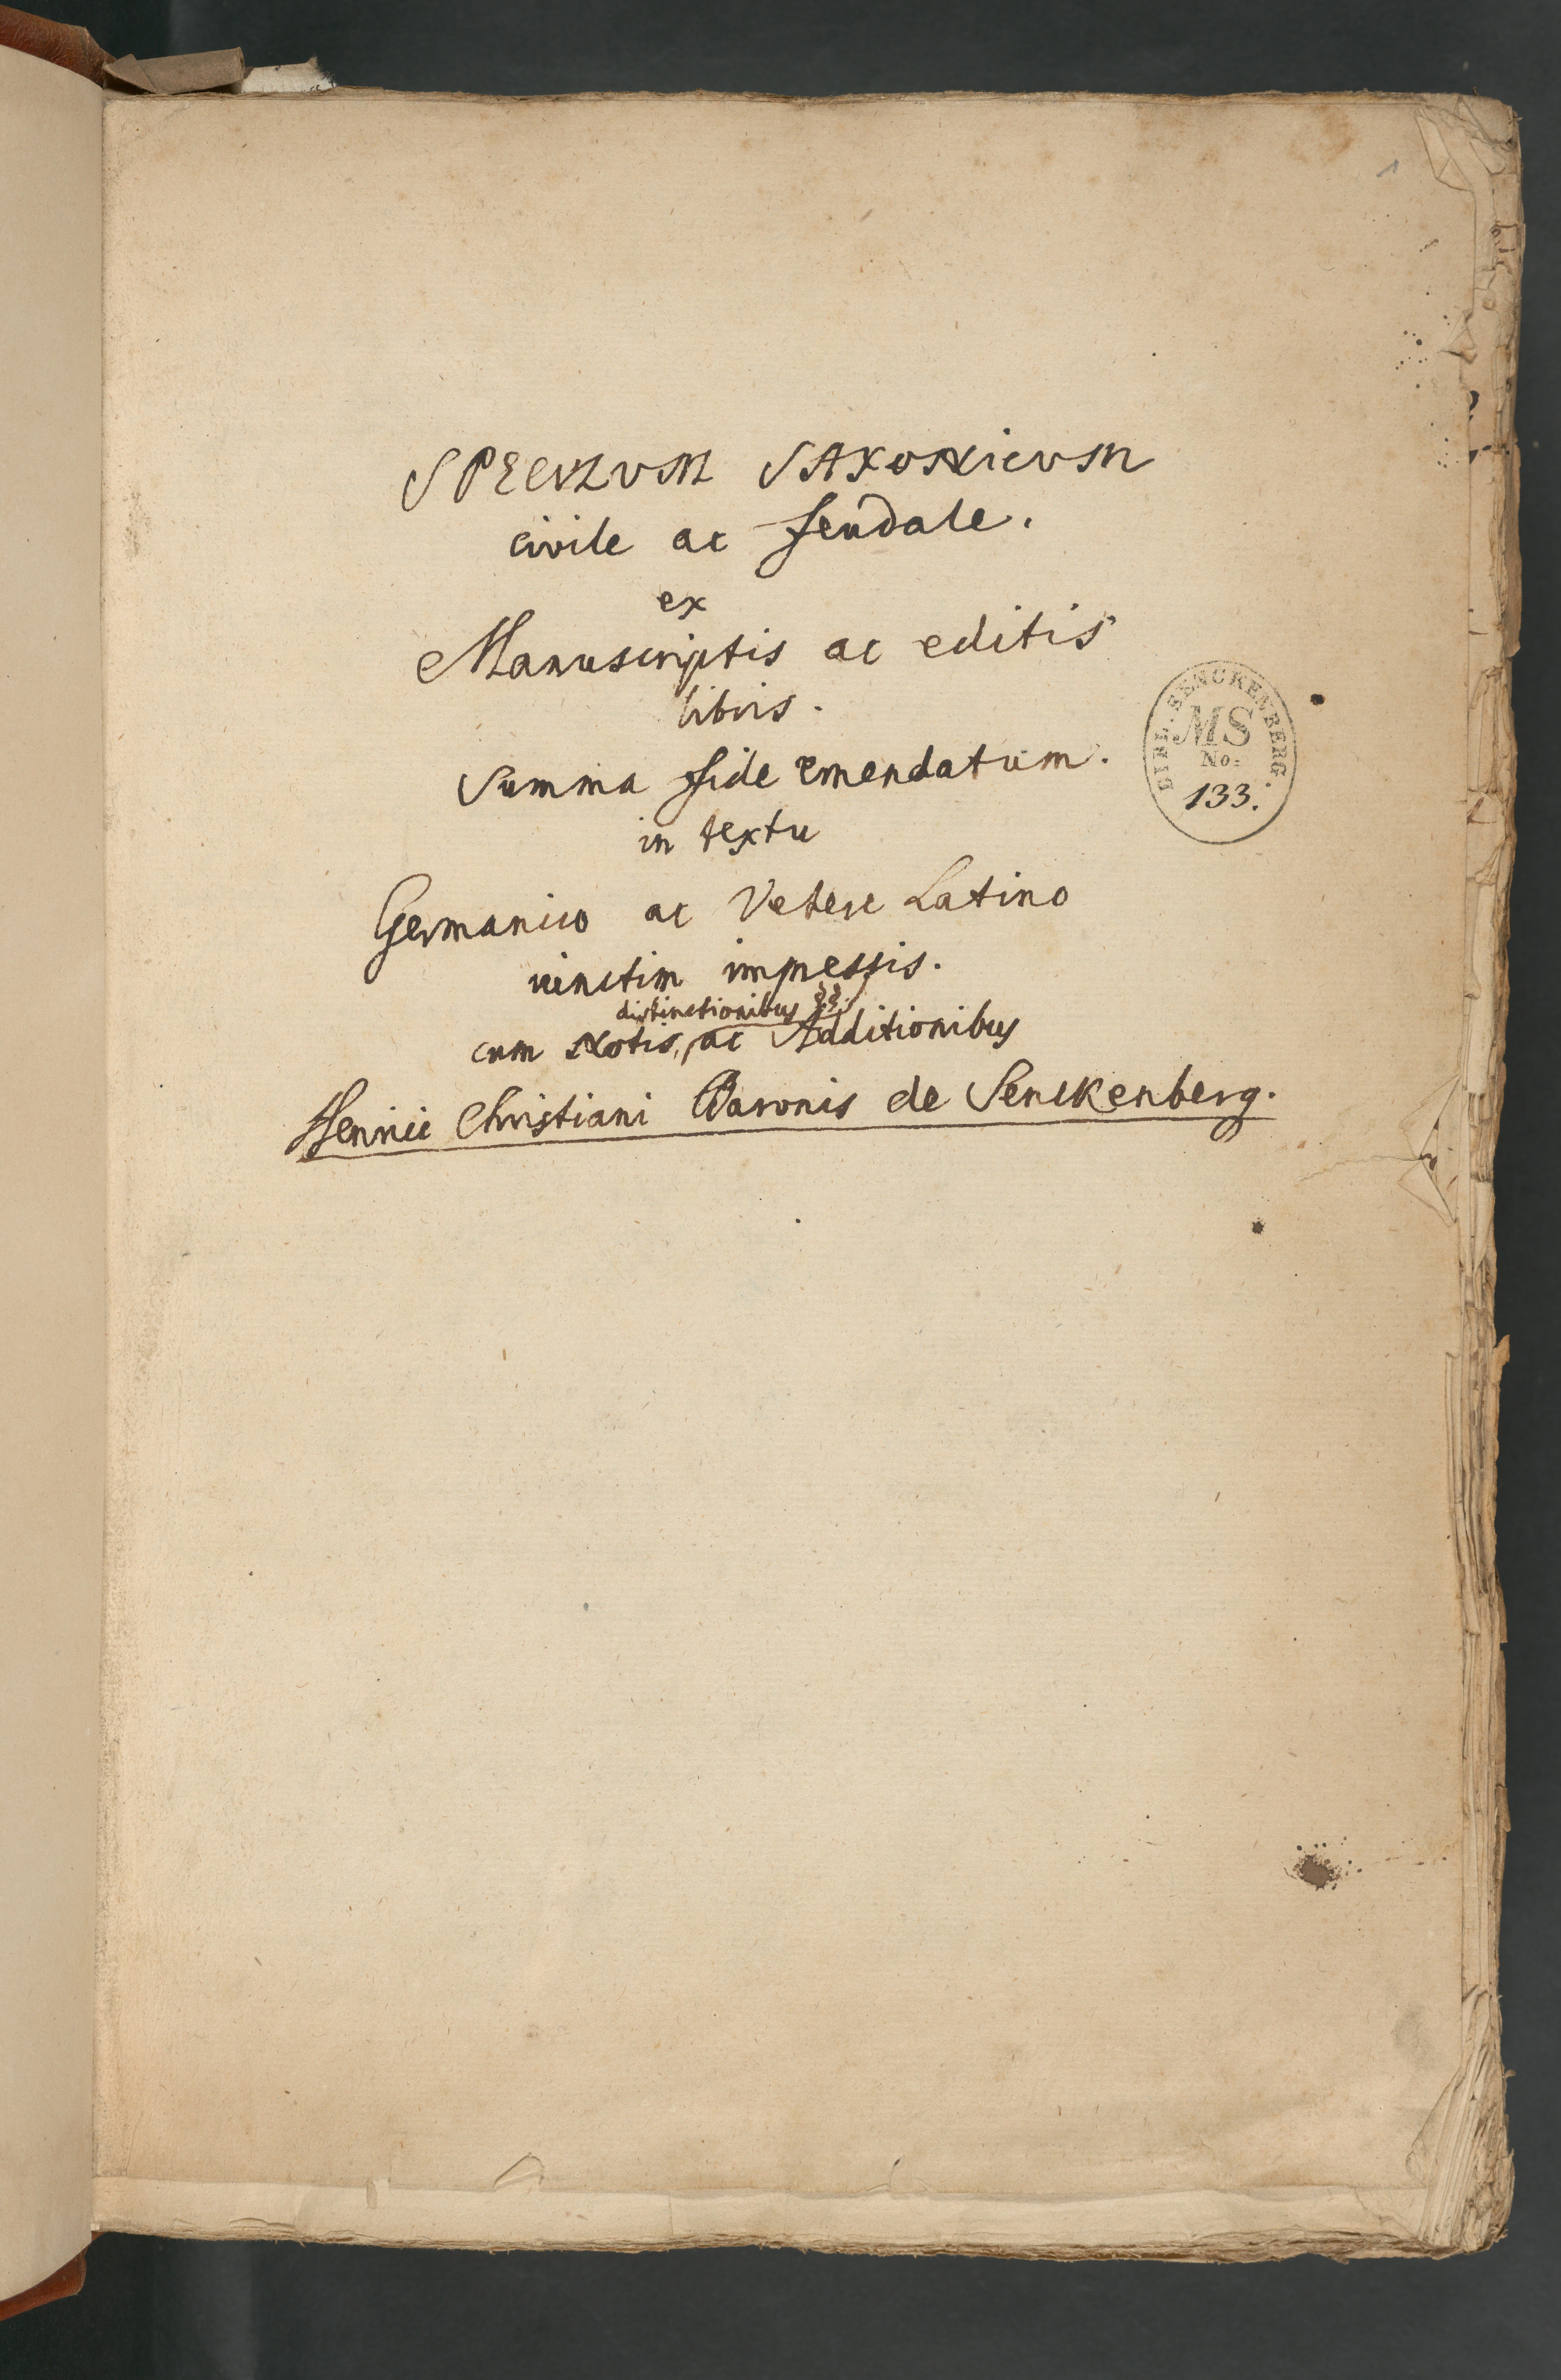 1
SPECVLVM SAXONicVM
civile ac feudale.
ex
Manuscriptis ac editis
libris.
Summa fide emendatum.
in textu
Germanico ac Vetere Latino
iunctim impressis.
distinctionibus §§.
cum Notis, ac Additionibus
Henrici Christiani Baronis de Senckenberg.
BIBL. SENCKENBERG.
MS
No:
133.